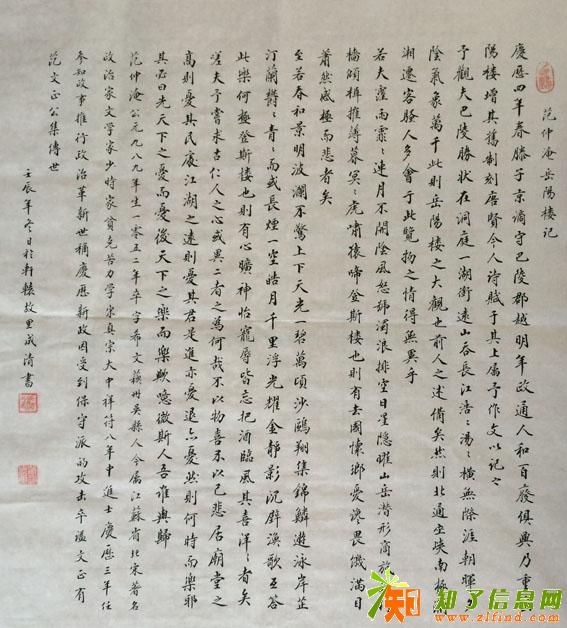 范仲淹岳陽樓記
慶歷四年春滕子京謫守巴陵郡越明年政通人和百廢俱興乃重
陽樓增其舊制刻唐賢今人詩賦于其上屬予作文以記之
予觀夫巴陵勝狀在洞庭一湖銜遠山吞長江浩〻湯〻橫無際涯朝暉夕
陰氣象萬千此則岳陽樓之大觀也前人之述備矣然則北通巫峽南極瀟
湘遷客騷人多會于此覽物之情得無異乎
若夫霪雨霏〻連月不開陰風怒號濁浪排空日星隱曜山岳潛形商旅不行
檣傾楫摧薄暮冥〻虎嘯猿啼登斯樓也則有去國懷鄉憂讒畏譏滿目
蕭然感極而悲者矣
至若春和景明波瀾不驚上下天光一碧萬頃沙鷗翔集錦鱗遊泳岸芷
汀蘭鬱〻青〻而或長煙一空皓月千里浮光耀金靜影沉璧漁歌互答
此樂何極登斯樓也則有心曠神怡寵辱皆忘把酒臨風其喜洋〻者矣
嗟夫予嘗求古仁人之心或異二者之為何哉不以物喜不以己悲居廟堂之
高則憂其民處江湖之遠則憂其君是進亦憂退亦憂然則何時而樂耶
其必曰先天下之憂而憂後天下之樂而樂歟噫微斯人吾誰與歸
范仲淹公元九八九年生一零五二年卒字希文蘇州吳縣人今屬江蘇省北宋著名
政治家文學家少時家貧克苦力學宋真宗大中祥符八年中進士慶歷三年任
參知政事推行政治革新世稱慶歷新政因受到保守派的攻击卒謚文正有
范文正公集傳世
壬辰年冬日於軒轅故里成清書
知了信息网
www.zlfind.com